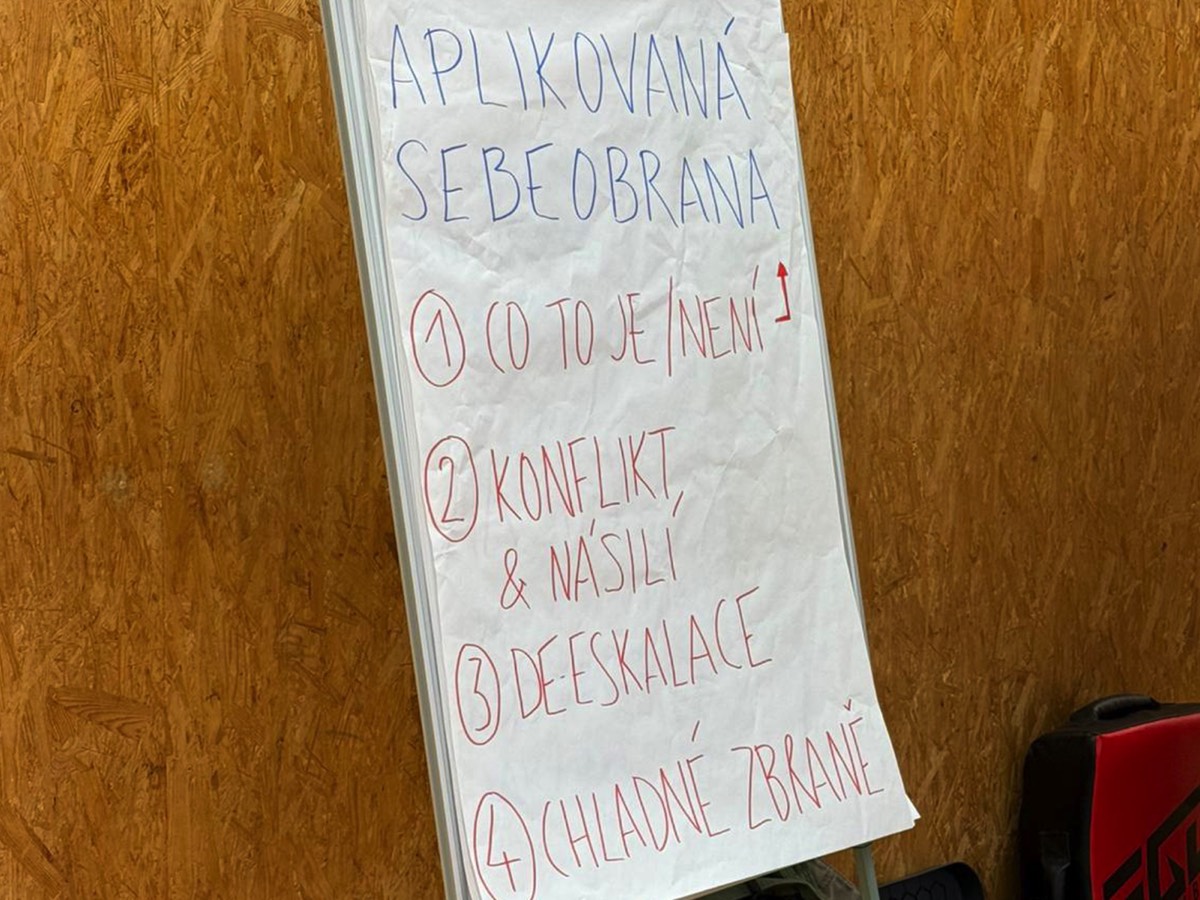 APLIKOVANÁ
SEBEOBRANA
① CO TO JE/NENÍ
② KONFLIKT,
& NÁSILÍ
③ DE-ESKALACE
④ CHLADNÉ ZBRANĚ